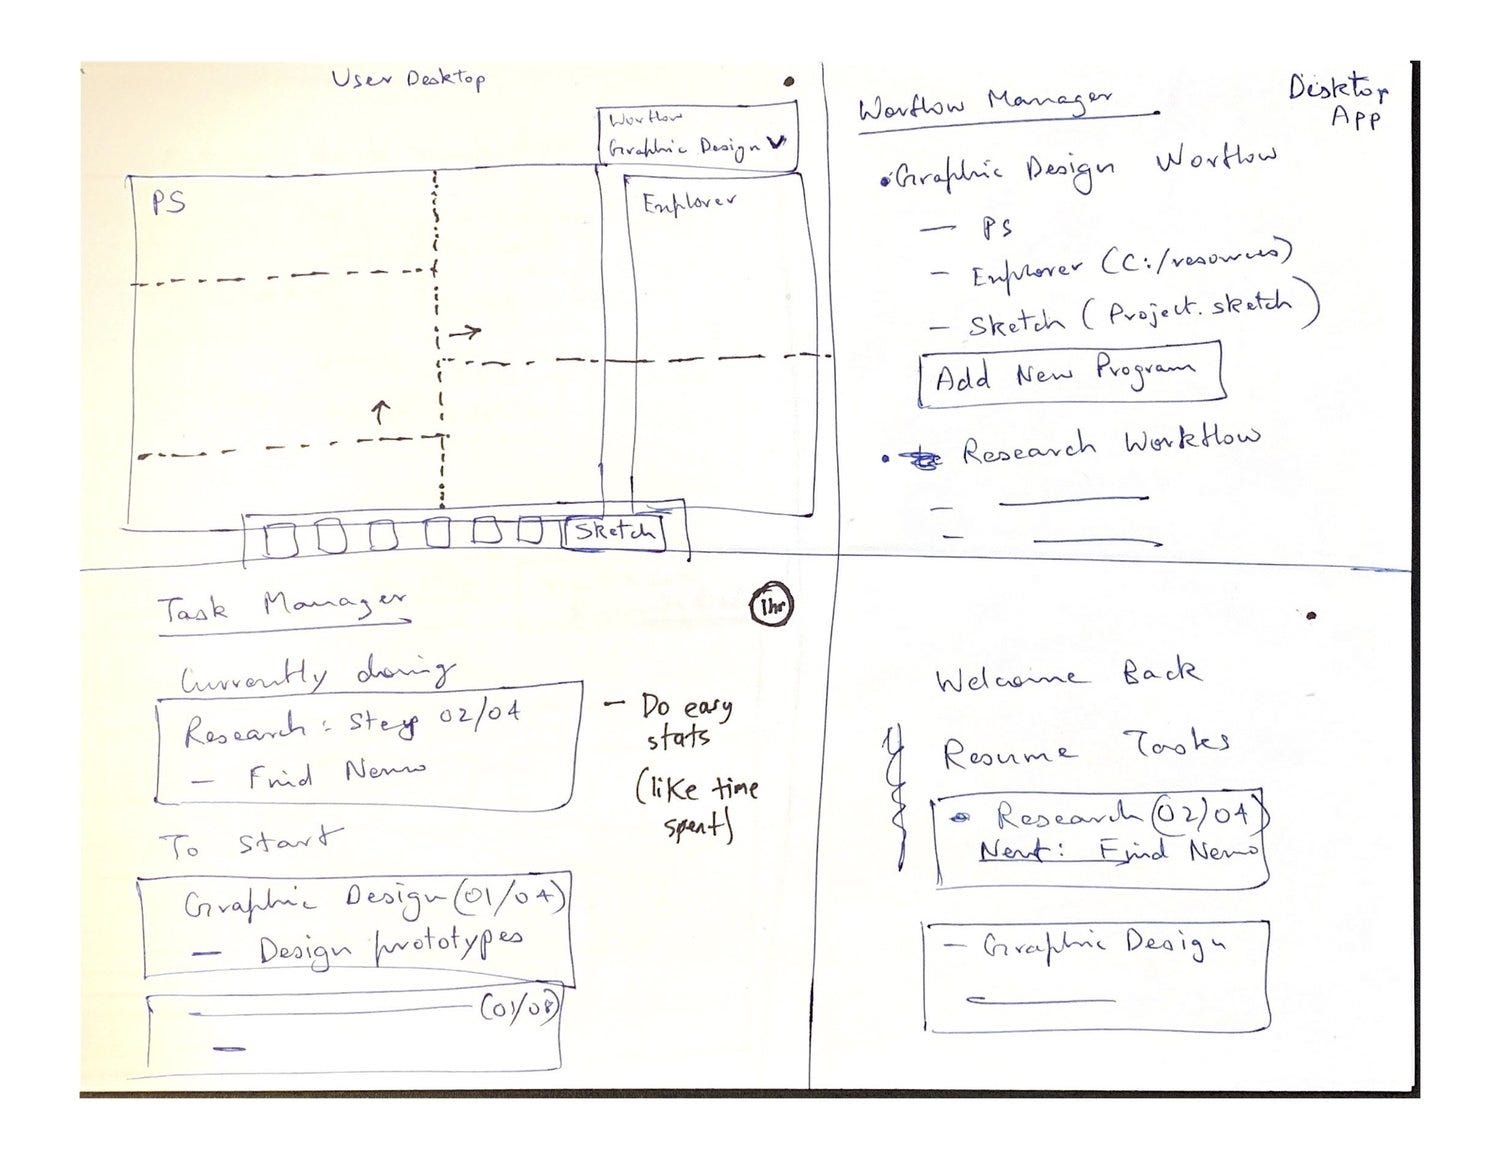 User Desktop
Worflow
Graphic Design
PS
Explorer
Sketch
Worflow Manager
Desktop
App
Graphic Design Worflow
— PS
— Explorer (C:/resources)
— Sketch (Project.sketch)
Add New Program
Research Workflow
Task Manager
1hr
Currently doing
Research: Step 02/04
— Find Nemo
— Do easy
stats
(like time
spent)
To Start
Graphic Design (01/04)
— Design prototypes
(01/08)
Welcome Back
Resume Tasks
Research (02/04)
Next: Find Nemo
— Graphic Design